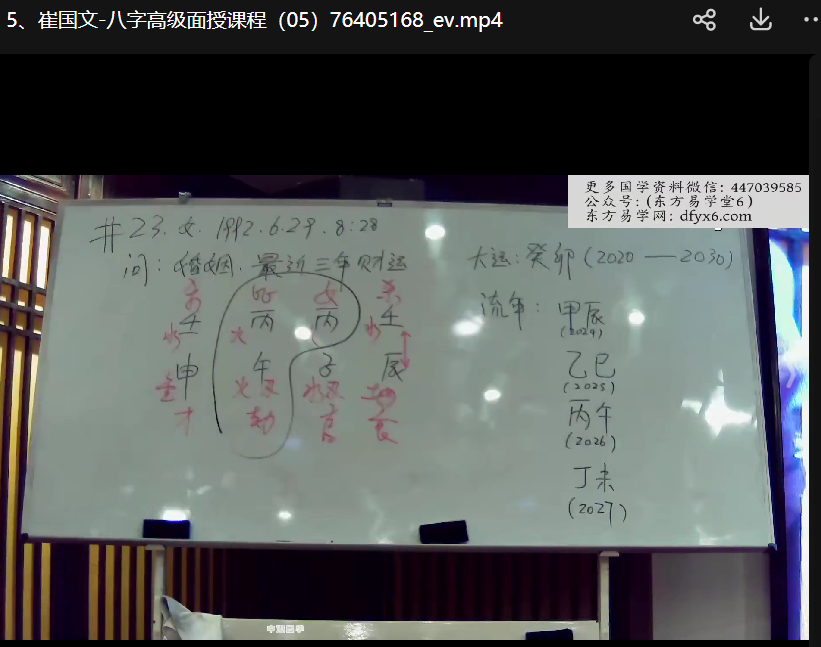 5、崔国文-八字高级面授课程（05）76405168_ev.mp4
更多国学资料微信：447039585
公众号：(东方易学堂6)
东方易学网：dfyx6.com
井23. 女. 1992.6.29. 8:28
问：婚姻. 最近三年财运
杀 比 女 杀
壬 丙 丙 壬
水 火 水
申 午 子 辰
金 火 水 土
才 劫 官 食
大运：癸卯(2020 — 2030)
流年：甲辰
(2024)
乙巳
(2025)
丙午
(2026)
丁未
(2027)